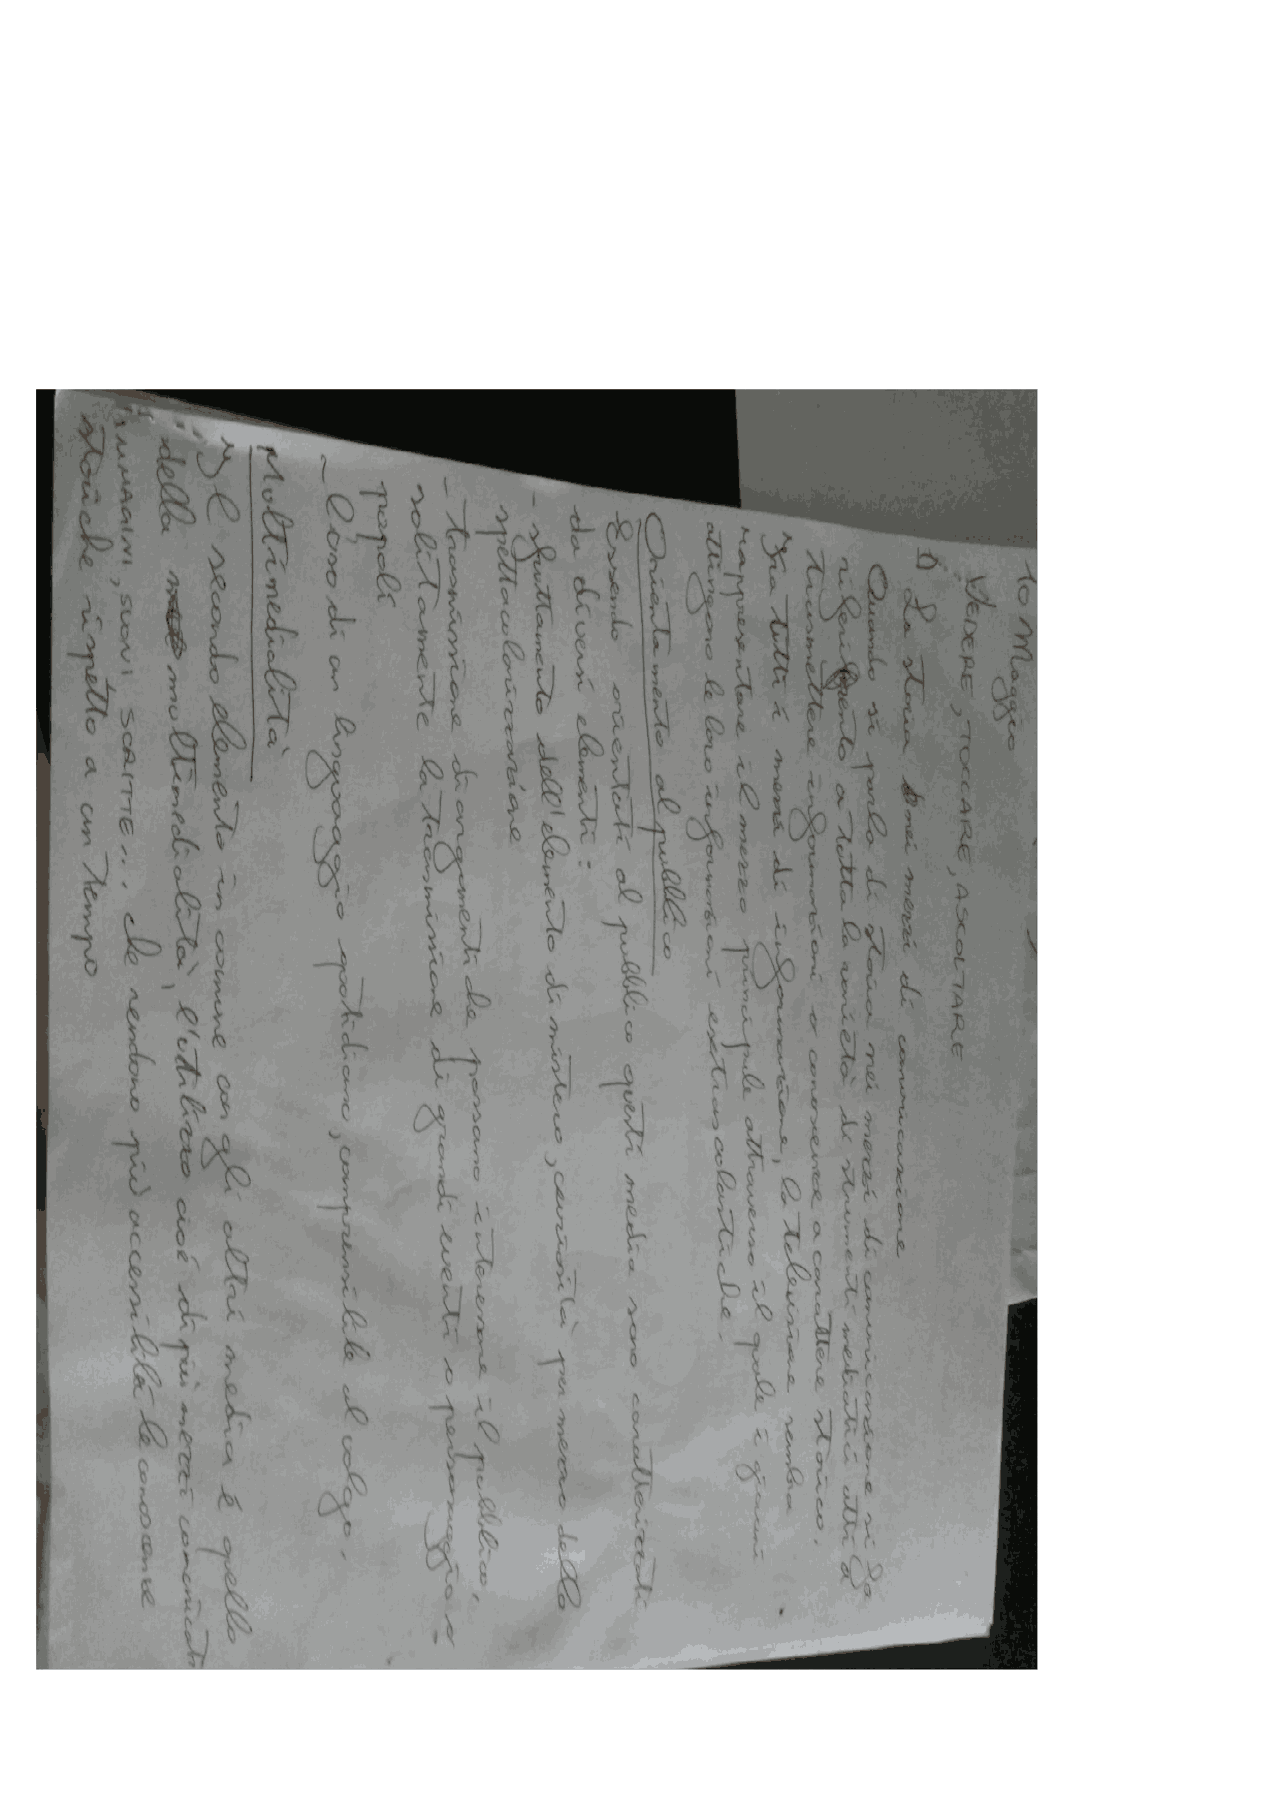 10 Maggio
VEDERE, TOCCARE, ASCOLTARE
1) La storia nei mezzi di comunicazione
Quando si parla di storia nei mezzi di comunicazione si fa
riferimento a tutta la varietà di strumenti mediatici atti a
trasmettere informazioni o conoscenze a carattere storico.
Fra tutti i mezzi di informazione, la televisione sembra
rappresentare il mezzo principale attraverso il quale i giovani
attingono le loro informazioni extrascolastiche.
Orientamento al pubblico
Essendo orientati al pubblico questi media sono caratterizzati
da diversi elementi:
- sfruttamento dell'elemento di mistero, curiosità per mezzo della
spettacolarizzazione
- trasmissione di argomenti che possano interessare il pubblico,
solitamente la trasmissione di grandi eventi o personaggi o
popoli
- L'uso di un linguaggio quotidiano, comprensibile al volgo.
Multimedialità
Il secondo elemento in comune con gli altri media è quello
della multimedialità, l'utilizzo cioè di più mezzi comunicativi
IMMAGINI, SUONI SCRITTE.. che rendono più accessibili le conoscenze
storiche rispetto a un tempo